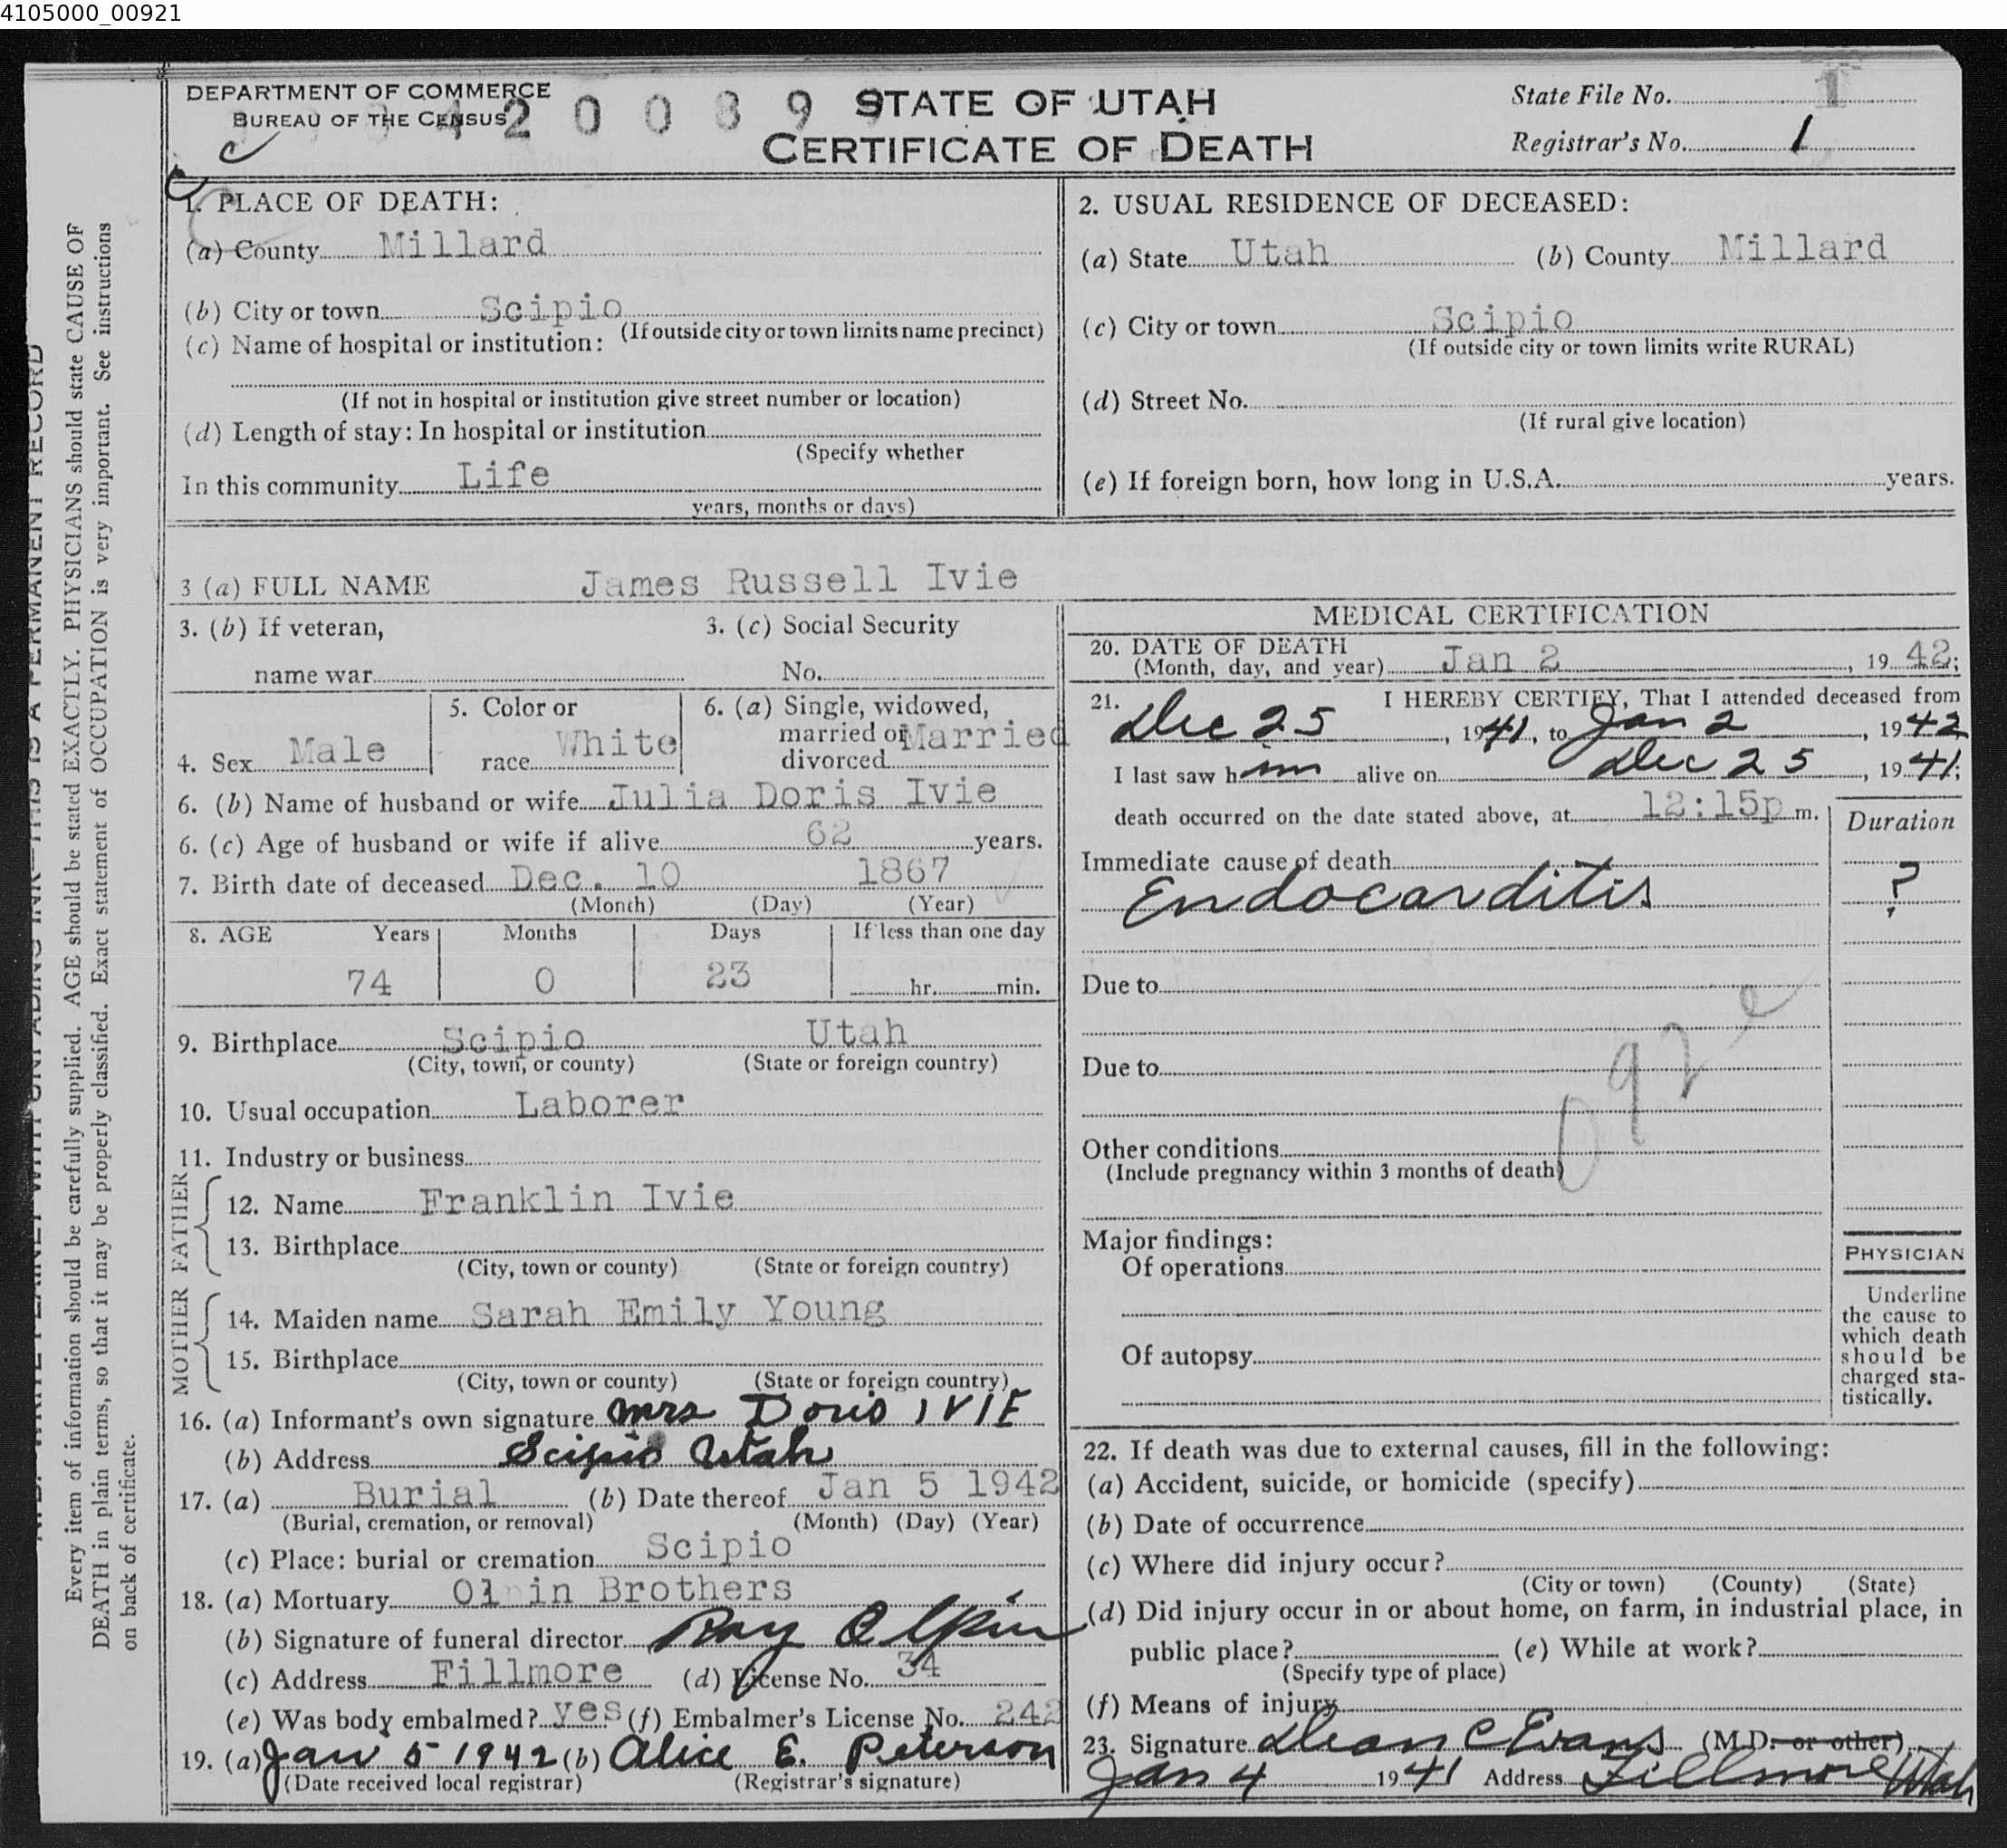 4105000_00921
DEPARTMENT OF COMMERCE
BUREAU OF THE CENSUS
4 2 0 0 8 9 9
STATE OF UTAH
CERTIFICATE OF DEATH
State File No. 1
Registrar's No. 1
1. PLACE OF DEATH:
(a) County Millard
(b) City or town Scipio
(If outside city or town limits name precinct)
(c) Name of hospital or institution:
(If not in hospital or institution give street number or location)
(d) Length of stay: In hospital or institution
(Specify whether
In this community Life
years, months or days)
2. USUAL RESIDENCE OF DECEASED:
(a) State Utah (b) County Millard
(c) City or town Scipio
(If outside city or town limits write RURAL)
(d) Street No.
(If rural give location)
(e) If foreign born, how long in U.S.A. years.
3 (a) FULL NAME James Russell Ivie
3. (b) If veteran,
name war
3. (c) Social Security
No.
4. Sex Male
5. Color or
race White
6. (a) Single, widowed,
married or Married
divorced
6. (b) Name of husband or wife Julia Doris Ivie
6. (c) Age of husband or wife if alive 62 years.
7. Birth date of deceased Dec. 10 1867
(Month) (Day) (Year)
8. AGE Years Months Days If less than one day
74 0 23 hr. min.
9. Birthplace Scipio Utah
(City, town, or county) (State or foreign country)
10. Usual occupation Laborer
11. Industry or business
FATHER
12. Name Franklin Ivie
13. Birthplace
(City, town or county) (State or foreign country)
MOTHER
14. Maiden name Sarah Emily Young
15. Birthplace
(City, town or county) (State or foreign country)
16. (a) Informant's own signature Mrs Doris IVIE
(b) Address Scipio Utah
17. (a) Burial (b) Date thereof Jan 5 1942
(Burial, cremation, or removal) (Month) (Day) (Year)
(c) Place: burial or cremation Scipio
18. (a) Mortuary Olpin Brothers
(b) Signature of funeral director Ray Olpin
(c) Address Fillmore (d) License No. 34
(e) Was body embalmed? yes (f) Embalmer's License No. 242
19. (a) Jan 5 1942 (b) Alice E. Peterson
(Date received local registrar) (Registrar's signature)
MEDICAL CERTIFICATION
20. DATE OF DEATH
(Month, day, and year) Jan 2, 1942;
21. I HEREBY CERTIFY, That I attended deceased from
Dec 25, 1941, to Jan 2, 1942
I last saw him alive on Dec 25, 1941;
death occurred on the date stated above, at 12:15p m.
Duration
Immediate cause of death
Endocarditis ?
Due to
Due to
092 e
Other conditions
(Include pregnancy within 3 months of death)
Major findings:
Of operations
Of autopsy
PHYSICIAN
Underline
the cause to
which death
should be
charged sta-
tistically.
22. If death was due to external causes, fill in the following:
(a) Accident, suicide, or homicide (specify)
(b) Date of occurrence
(c) Where did injury occur?
(City or town) (County) (State)
(d) Did injury occur in or about home, on farm, in industrial place, in
public place? (e) While at work?
(Specify type of place)
(f) Means of injury
23. Signature Dean C Evans (M.D. or other)
Jan 4 1941 Address Fillmore Utah
Every item of information should be carefully supplied. AGE should be stated EXACTLY. PHYSICIANS should state CAUSE OF
DEATH in plain terms, so that it may be properly classified. Exact statement of OCCUPATION is very important. See instructions
on back of certificate.